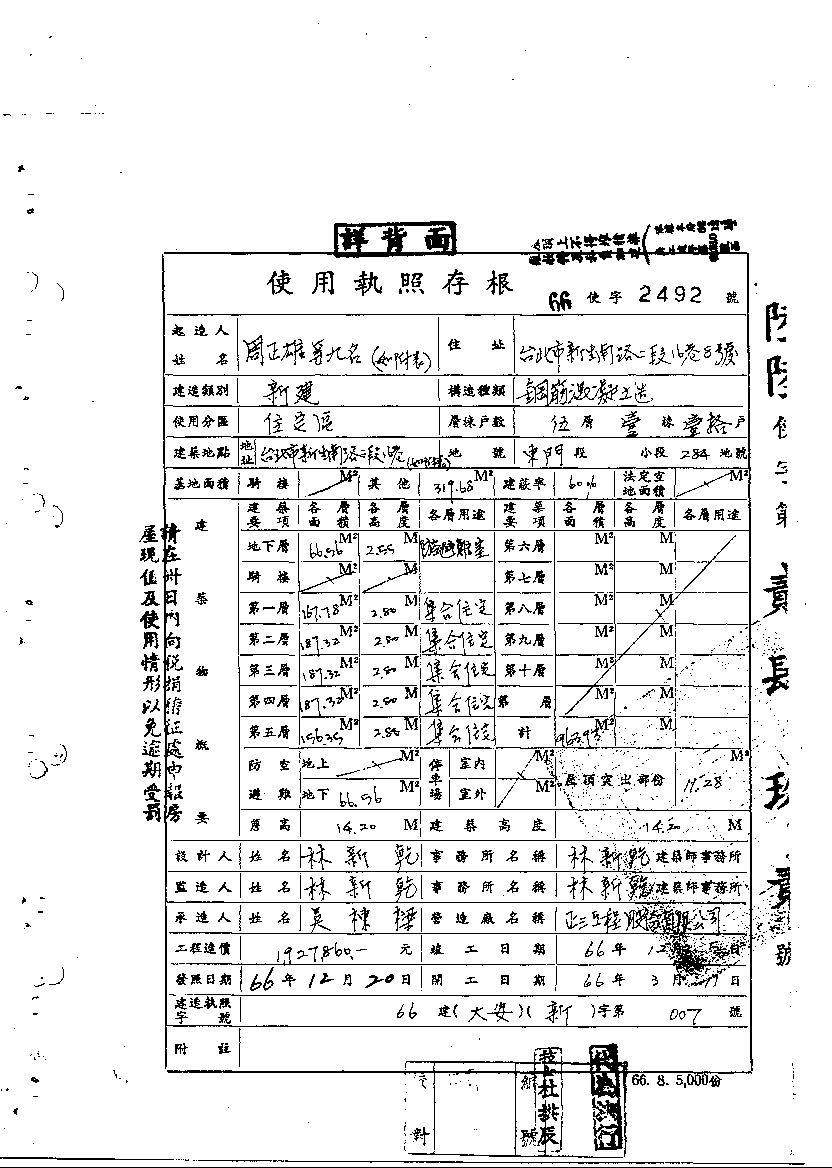 詳背面
使用執照存根
66 使字 2492 號
起造人姓名 周正雄等九名(如附表) 住址 台北市新生南路二段16巷8號
建造類別 新建 構造種類 鋼筋混凝土造
使用分區 住宅區 層棟戶數 伍層 壹棟 壹拾戶
建築地點 地址 台北市新生南路二段16巷 地號 東門段 小段 284 地號
基地面積 騎樓 M² 其他 319.68 M² 建蔽率 60% 法定空地面積 M²
建築物概要
建築要項 各層面積 各層高度 各層用途 建築要項 各層面積 各層高度 各層用途
地下層 66.56 M² 2.55 M 防空避難室 第六層 M² M
騎樓 M² M 第七層 M² M
第一層 167.78 M² 2.80 M 集合住宅 第八層 M² M
第二層 187.32 M² 2.80 M 集合住宅 第九層 M² M
第三層 187.32 M² 2.80 M 集合住宅 第十層 M² M
第四層 187.32 M² 2.80 M 集合住宅 第 層 M² M
第五層 156.35 M² 2.80 M 集合住宅 計 M² M
防空避難 地上 M² 停車場 室內 M² 屋頂突出部份 M²
地下 66.56 M² 室外 M² 11.28
簷高 14.20 M 建築高度 14.20 M
設計人 姓名 林新乾 事務所名稱 林新乾建築師事務所
監造人 姓名 林新乾 事務所名稱 林新乾建築師事務所
承造人 姓名 吳棟樑 營造廠名稱 正三工程股份有限公司
工程造價 1927860.- 元 竣工日期 66年 12 日
發照日期 66年12月20日 開工日期 66年 3月 日
建造執照字號 66 建(大安)(新)字第 007 號
附註
請在卅日內向稅捐稽征處申報房
屋現值及使用情形以免逾期受罰
66. 8. 5,000份
號